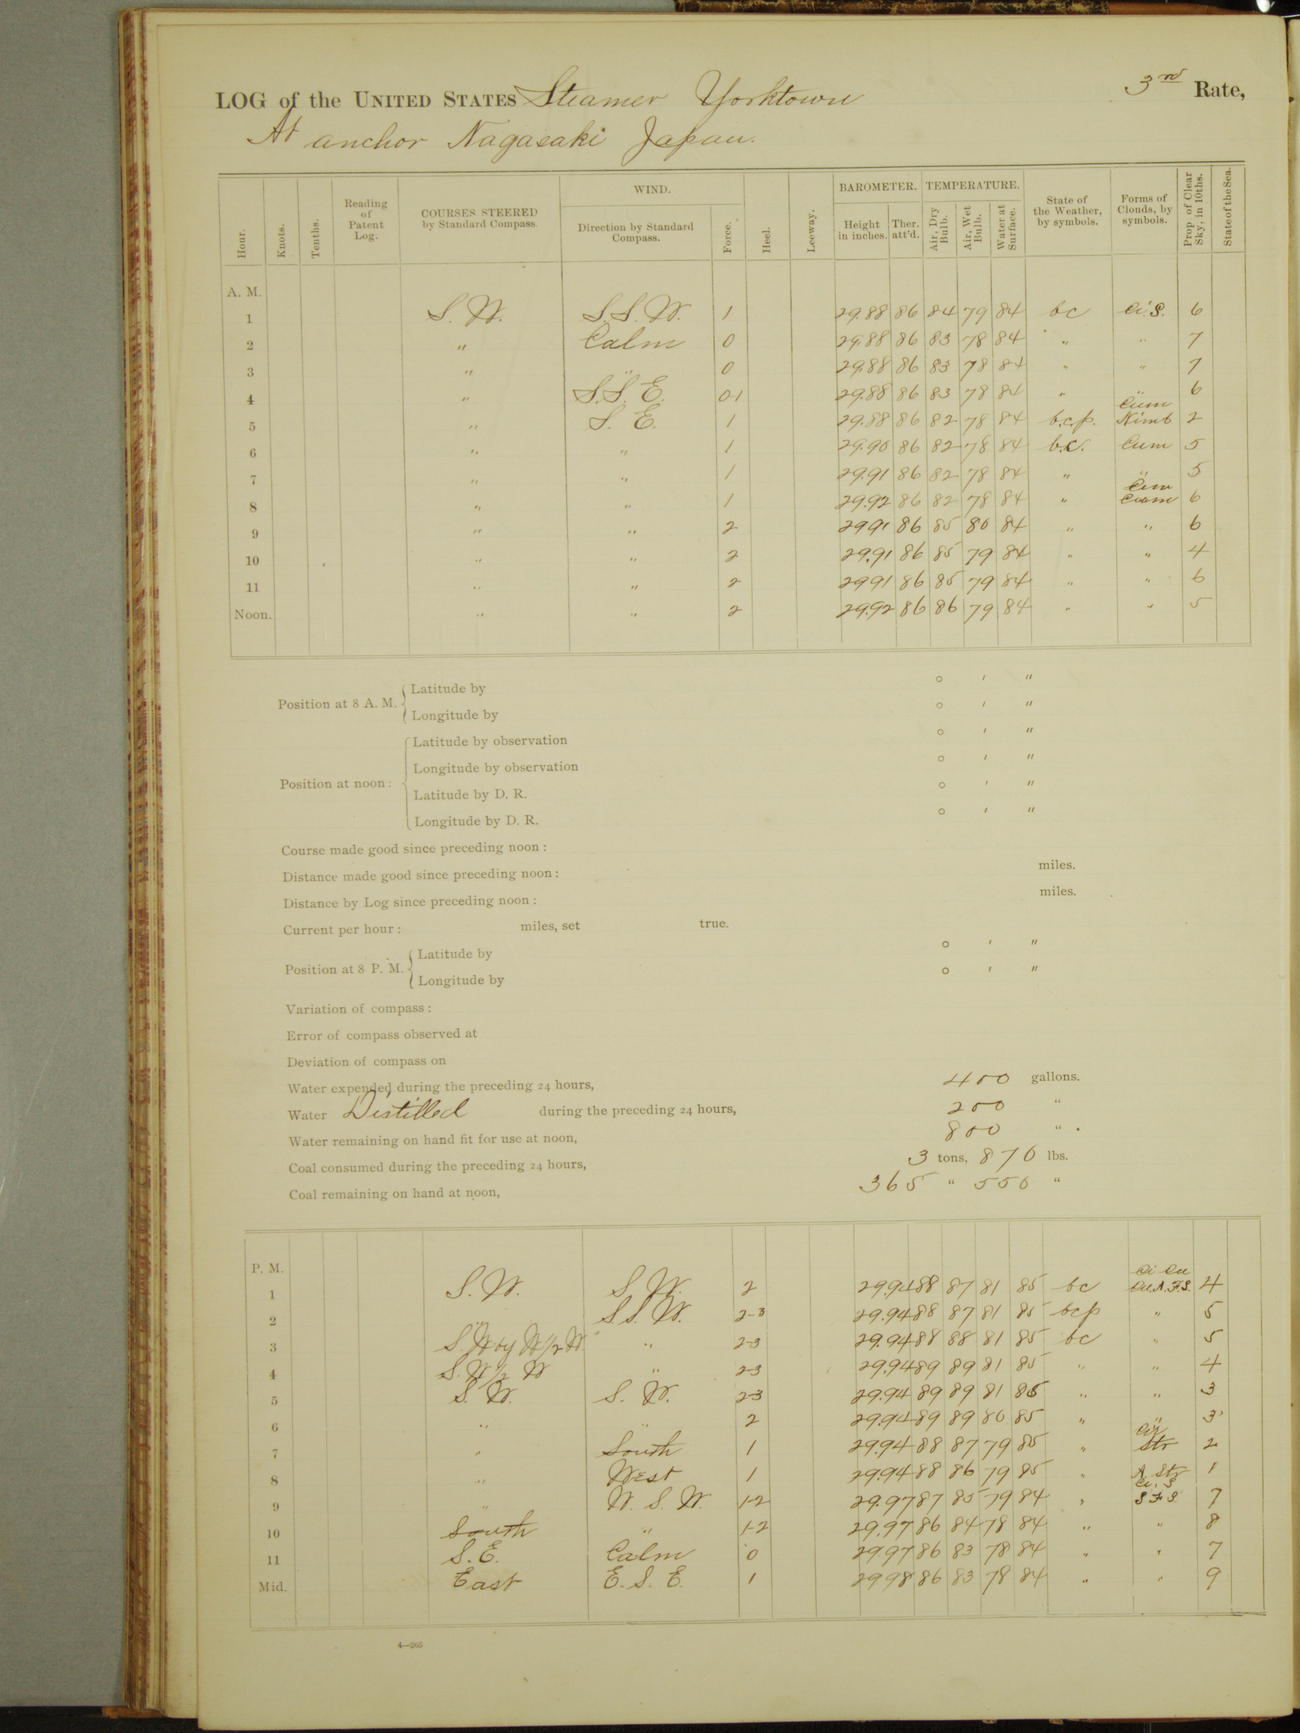 LOG of the UNITED STATES Steamer Yorktown 3rd Rate,
At anchor Nagasaki Japan.
Hour. Knots. Tenths. Reading of Patent Log. COURSES STEERED by Standard Compass. WIND. Direction by Standard Compass. Force. Heel. Leeway. BAROMETER. Height in inches. Ther. att'd. TEMPERATURE. Air, Dry Bulb. Air, Wet Bulb. Water at Surface. State of the Weather, by symbols. Forms of Clouds, by symbols. Prop. of Clear Sky, in 10ths. State of the Sea.
A. M.
1 S. W. S.S.W. 1 29.88 86 84 79 84 bc Ci.S. 6
2 " Calm 0 29.88 86 83 78 84 " " 7
3 " " 0 29.88 86 83 78 84 " " 7
4 " S.S.E. 0-1 29.88 86 83 78 84 " " 6
5 " S. E. 1 29.88 86 82 78 84 b.c.p. Cum Nimb 2
6 " " 1 29.90 86 82 78 84 b.c. Cum 5
7 " " 1 29.91 86 82 78 84 " " 5
8 " " 1 29.92 86 82 78 84 " 6
9 " " 2 29.91 86 85 80 84 " " 6
10 " " 2 29.91 86 85 79 84 " " 4
11 " " 2 29.91 86 85 79 84 " " 6
Noon. " " 2 29.92 86 86 79 84 " " 5
Position at 8 A. M. Latitude by ° ' "
Longitude by ° ' "
Position at noon: Latitude by observation ° ' "
Longitude by observation ° ' "
Latitude by D. R. ° ' "
Longitude by D. R. ° ' "
Course made good since preceding noon:
Distance made good since preceding noon: miles.
Distance by Log since preceding noon: miles.
Current per hour: miles, set true.
Position at 8 P. M. Latitude by ° ' "
Longitude by ° ' "
Variation of compass:
Error of compass observed at
Deviation of compass on
Water expended during the preceding 24 hours, 400 gallons.
Water Distilled during the preceding 24 hours, 200 "
Water remaining on hand fit for use at noon, 800 "
Coal consumed during the preceding 24 hours, 3 tons, 870 lbs.
Coal remaining on hand at noon, 365 " 550 "
P. M.
1 S. W. S. W. 2 29.94 88 87 81 85 bc Ci Cu 4
2 " S.S.W. 2-3 29.94 88 87 81 85 bcp " 5
3 S.W by W1/2W " 2-3 29.94 88 88 81 85 bc " 5
4 S.W1/2 W " 2-3 29.94 89 89 81 85 " " 4
5 S. W. S. W. 2-3 29.94 89 89 81 85 " " 3
6 " " 2 29.94 89 89 80 85 " " 3
7 " South 1 29.94 88 87 79 85 " Str 2
8 " West 1 29.94 88 86 79 85 " 1
9 " W. S. W. 1-2 29.97 87 85 79 84 " 7
10 South " 1-2 29.97 86 84 78 84 " " 8
11 S. E. Calm 0 29.97 86 83 78 84 " " 7
Mid. East E. S. E. 1 29.98 86 83 78 84 " " 9
4—265